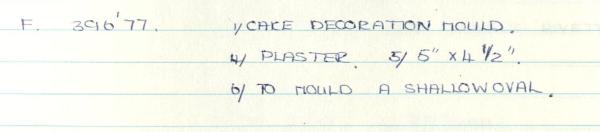 F. 396'77. 1/ CAKE DECORATION MOULD.
4/ PLASTER. 5/ 5" x 4 1/2".
6/ TO MOULD A SHALLOW OVAL.